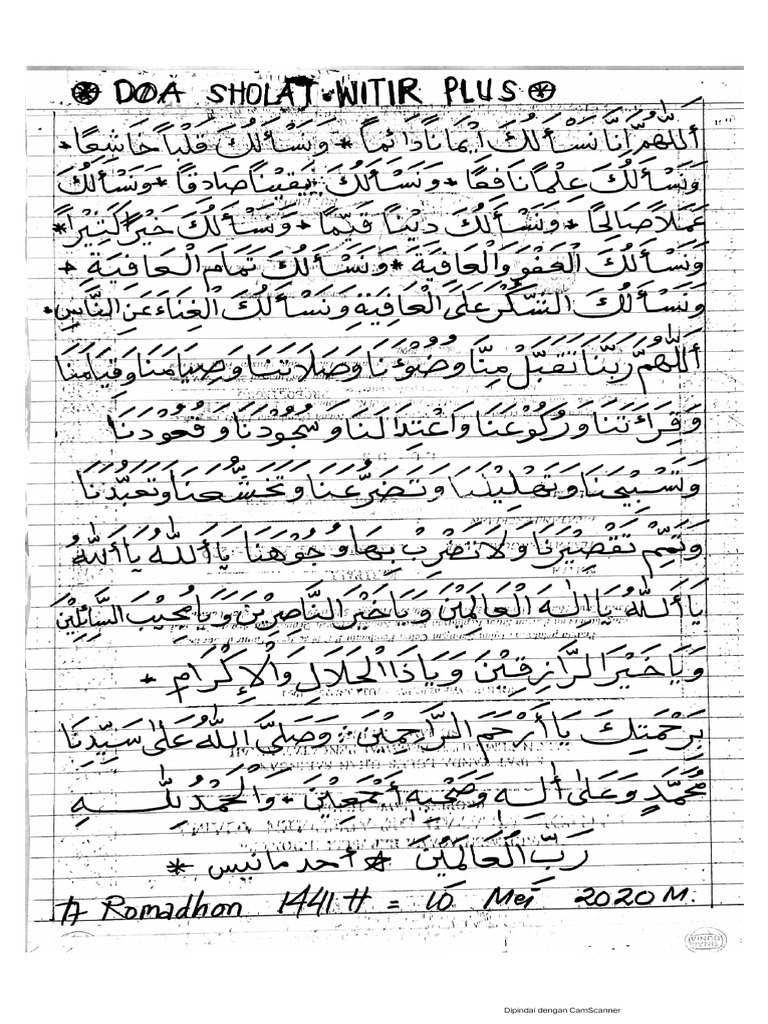 DOA SHOLAT WITIR PLUS
اَللّٰهُمَّ اِنَّا نَسْأَلُكَ اِيْمَانًا دَائِمًا * وَنَسْأَلُكَ قَلْبًا خَاشِعًا *
وَنَسْأَلُكَ عِلْمًا نَافِعًا * وَنَسْأَلُكَ يَقِيْنًا صَادِقًا * وَنَسْأَلُكَ
عَمَلًا صَالِحًا * وَنَسْأَلُكَ دِيْنًا قَيِّمًا * وَنَسْأَلُكَ خَيْرًا كَثِيْرًا *
وَنَسْأَلُكَ الْعَفْوَ وَالْعَافِيَةَ * وَنَسْأَلُكَ تَمَامَ الْعَافِيَةِ *
وَنَسْأَلُكَ الشُّكْرَ عَلَى الْعَافِيَةِ وَنَسْأَلُكَ الْغِنَاءَ عَنِ النَّاسِ *
اَللّٰهُمَّ رَبَّنَا تَقَبَّلْ مِنَّا وُضُوْءَنَا وَصَلَاتَنَا وَصِيَامَنَا وَقِيَامَنَا
وَقِرَاءَتَنَا وَرُكُوْعَنَا وَاعْتِدَلَنَا وَسُجُوْدَنَا وَقُعُوْدَنَا
وَتَسْبِيْحَنَا وَتَهْلِيْلَنَا وَتَضَرُّعَنَا وَتَخَشُّعَنَا وَتَعَبُّدَنَا
وَتَمِّمْ تَقْصِيْرَنَا وَلَا تَضْرِبْ بِهَا وُجُوْهَنَا يَا اَللّٰهُ يَا اَللّٰهُ
يَا اَللّٰهُ يَا اِلٰهَ الْعَالَمِيْنَ وَيَا خَيْرَ النَّاصِرِيْنَ وَيَا مُجِيْبَ السَّائِلِيْنَ
وَيَا خَيْرَ الرَّازِقِيْنَ وَيَا ذَا الْجَلَالِ وَالْإِكْرَامِ *
بِرَحْمَتِكَ يَا أَرْحَمَ الرَّاحِمِيْنَ * وَصَلَّى اللّٰهُ عَلَى سَيِّدِنَا
مُحَمَّدٍ وَعَلَى اٰلِهِ وَصَحْبِهِ أَجْمَعِيْنَ * وَالْحَمْدُ لِلّٰهِ
رَبِّ الْعَالَمِيْنَ * أحد مانيس *
17 Romadhon 1441 H = 10 Mei 2020 M.
Dipindai dengan CamScanner